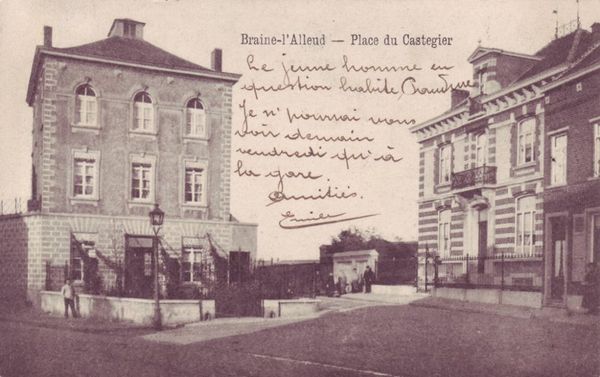 Braine-l'Alleud — Place du Castegier
Le jeune homme en
question habite
Je n' pourrai vous
voir demain
vendredi qu'à
la gare.
Amitiés.